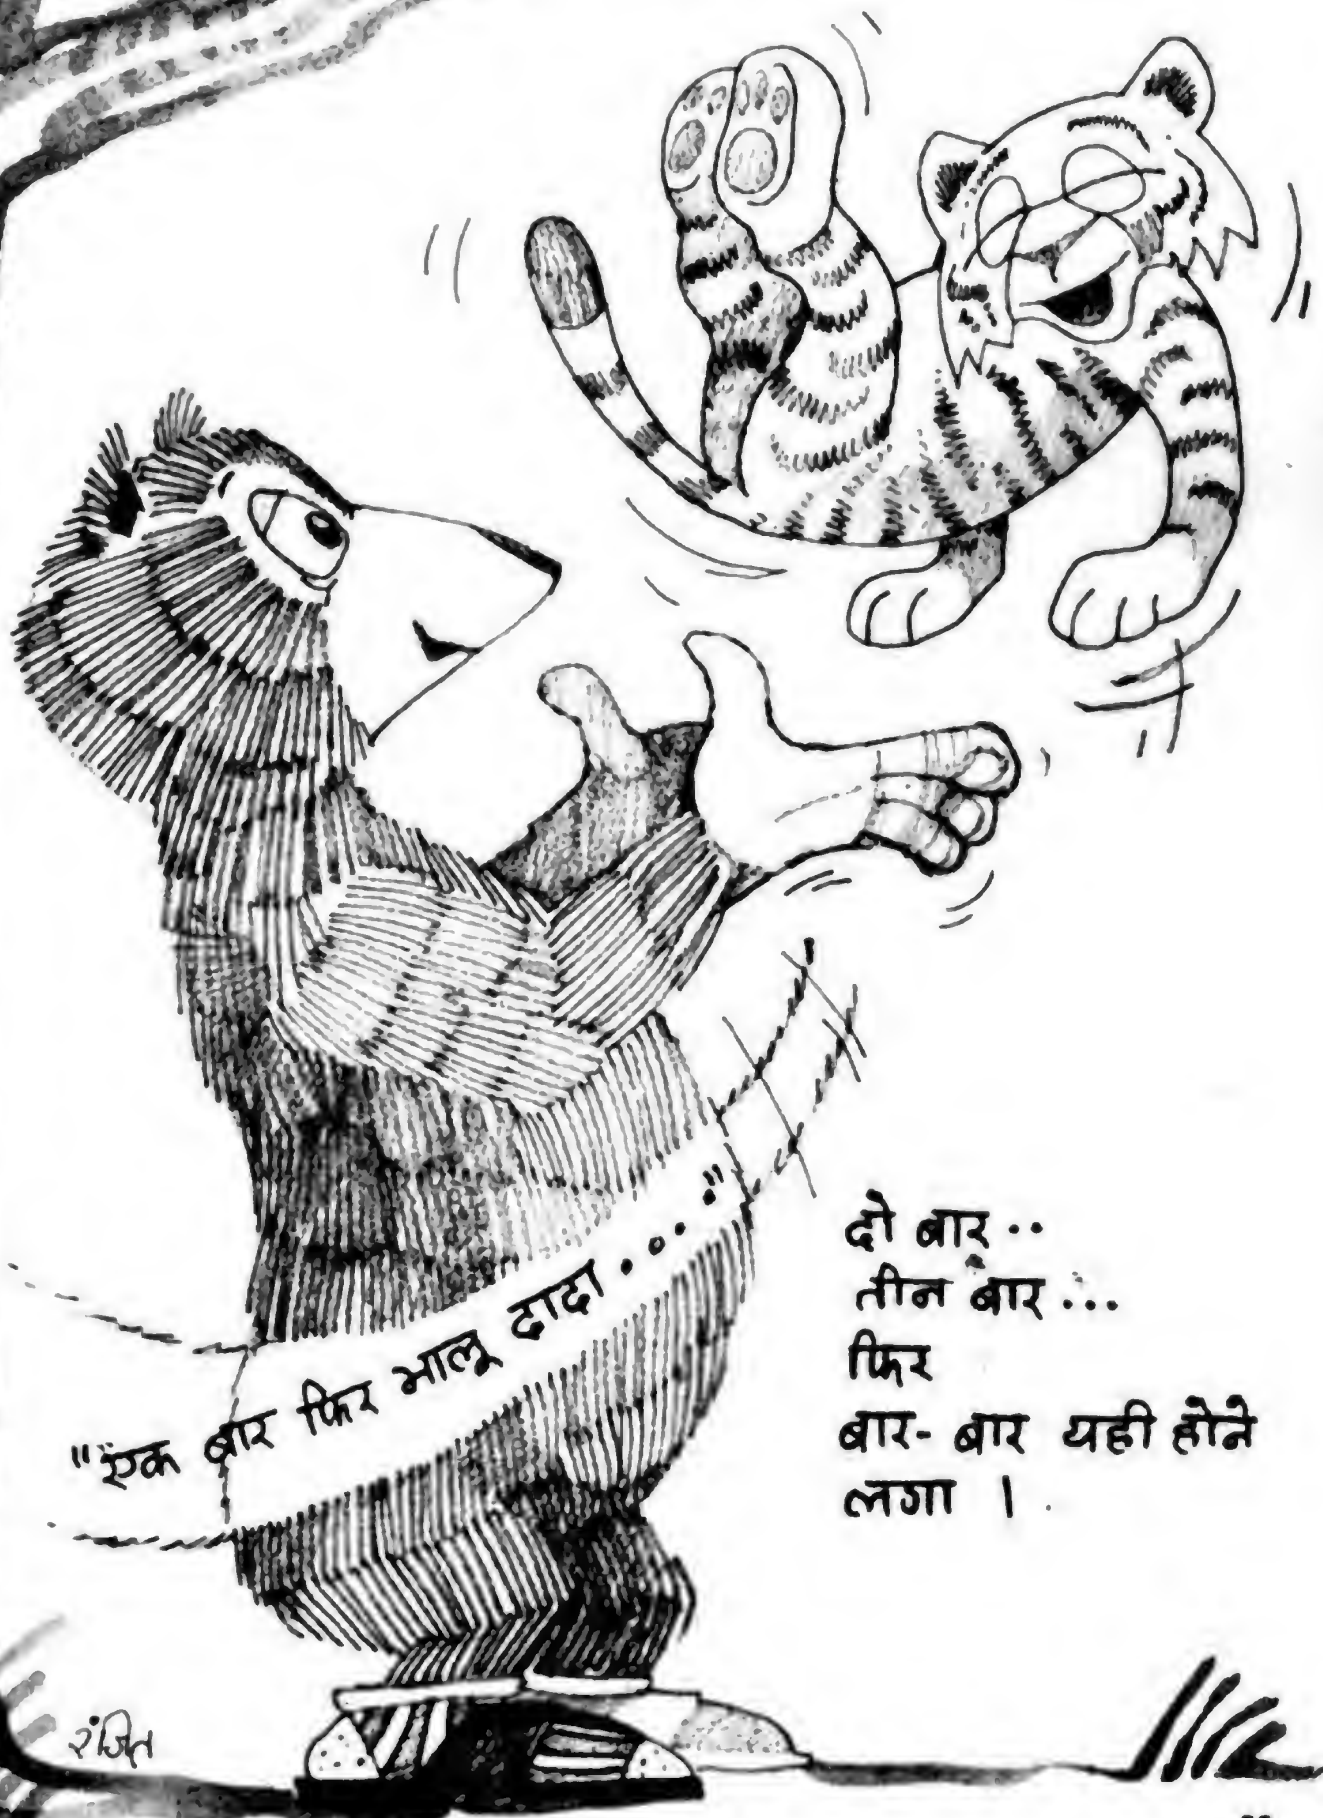 "एक बार फिर भालू दादा . . . ."
दो बार ..
तीन बार ...
फिर
बार-बार यही होने
लगा ।
रंजित